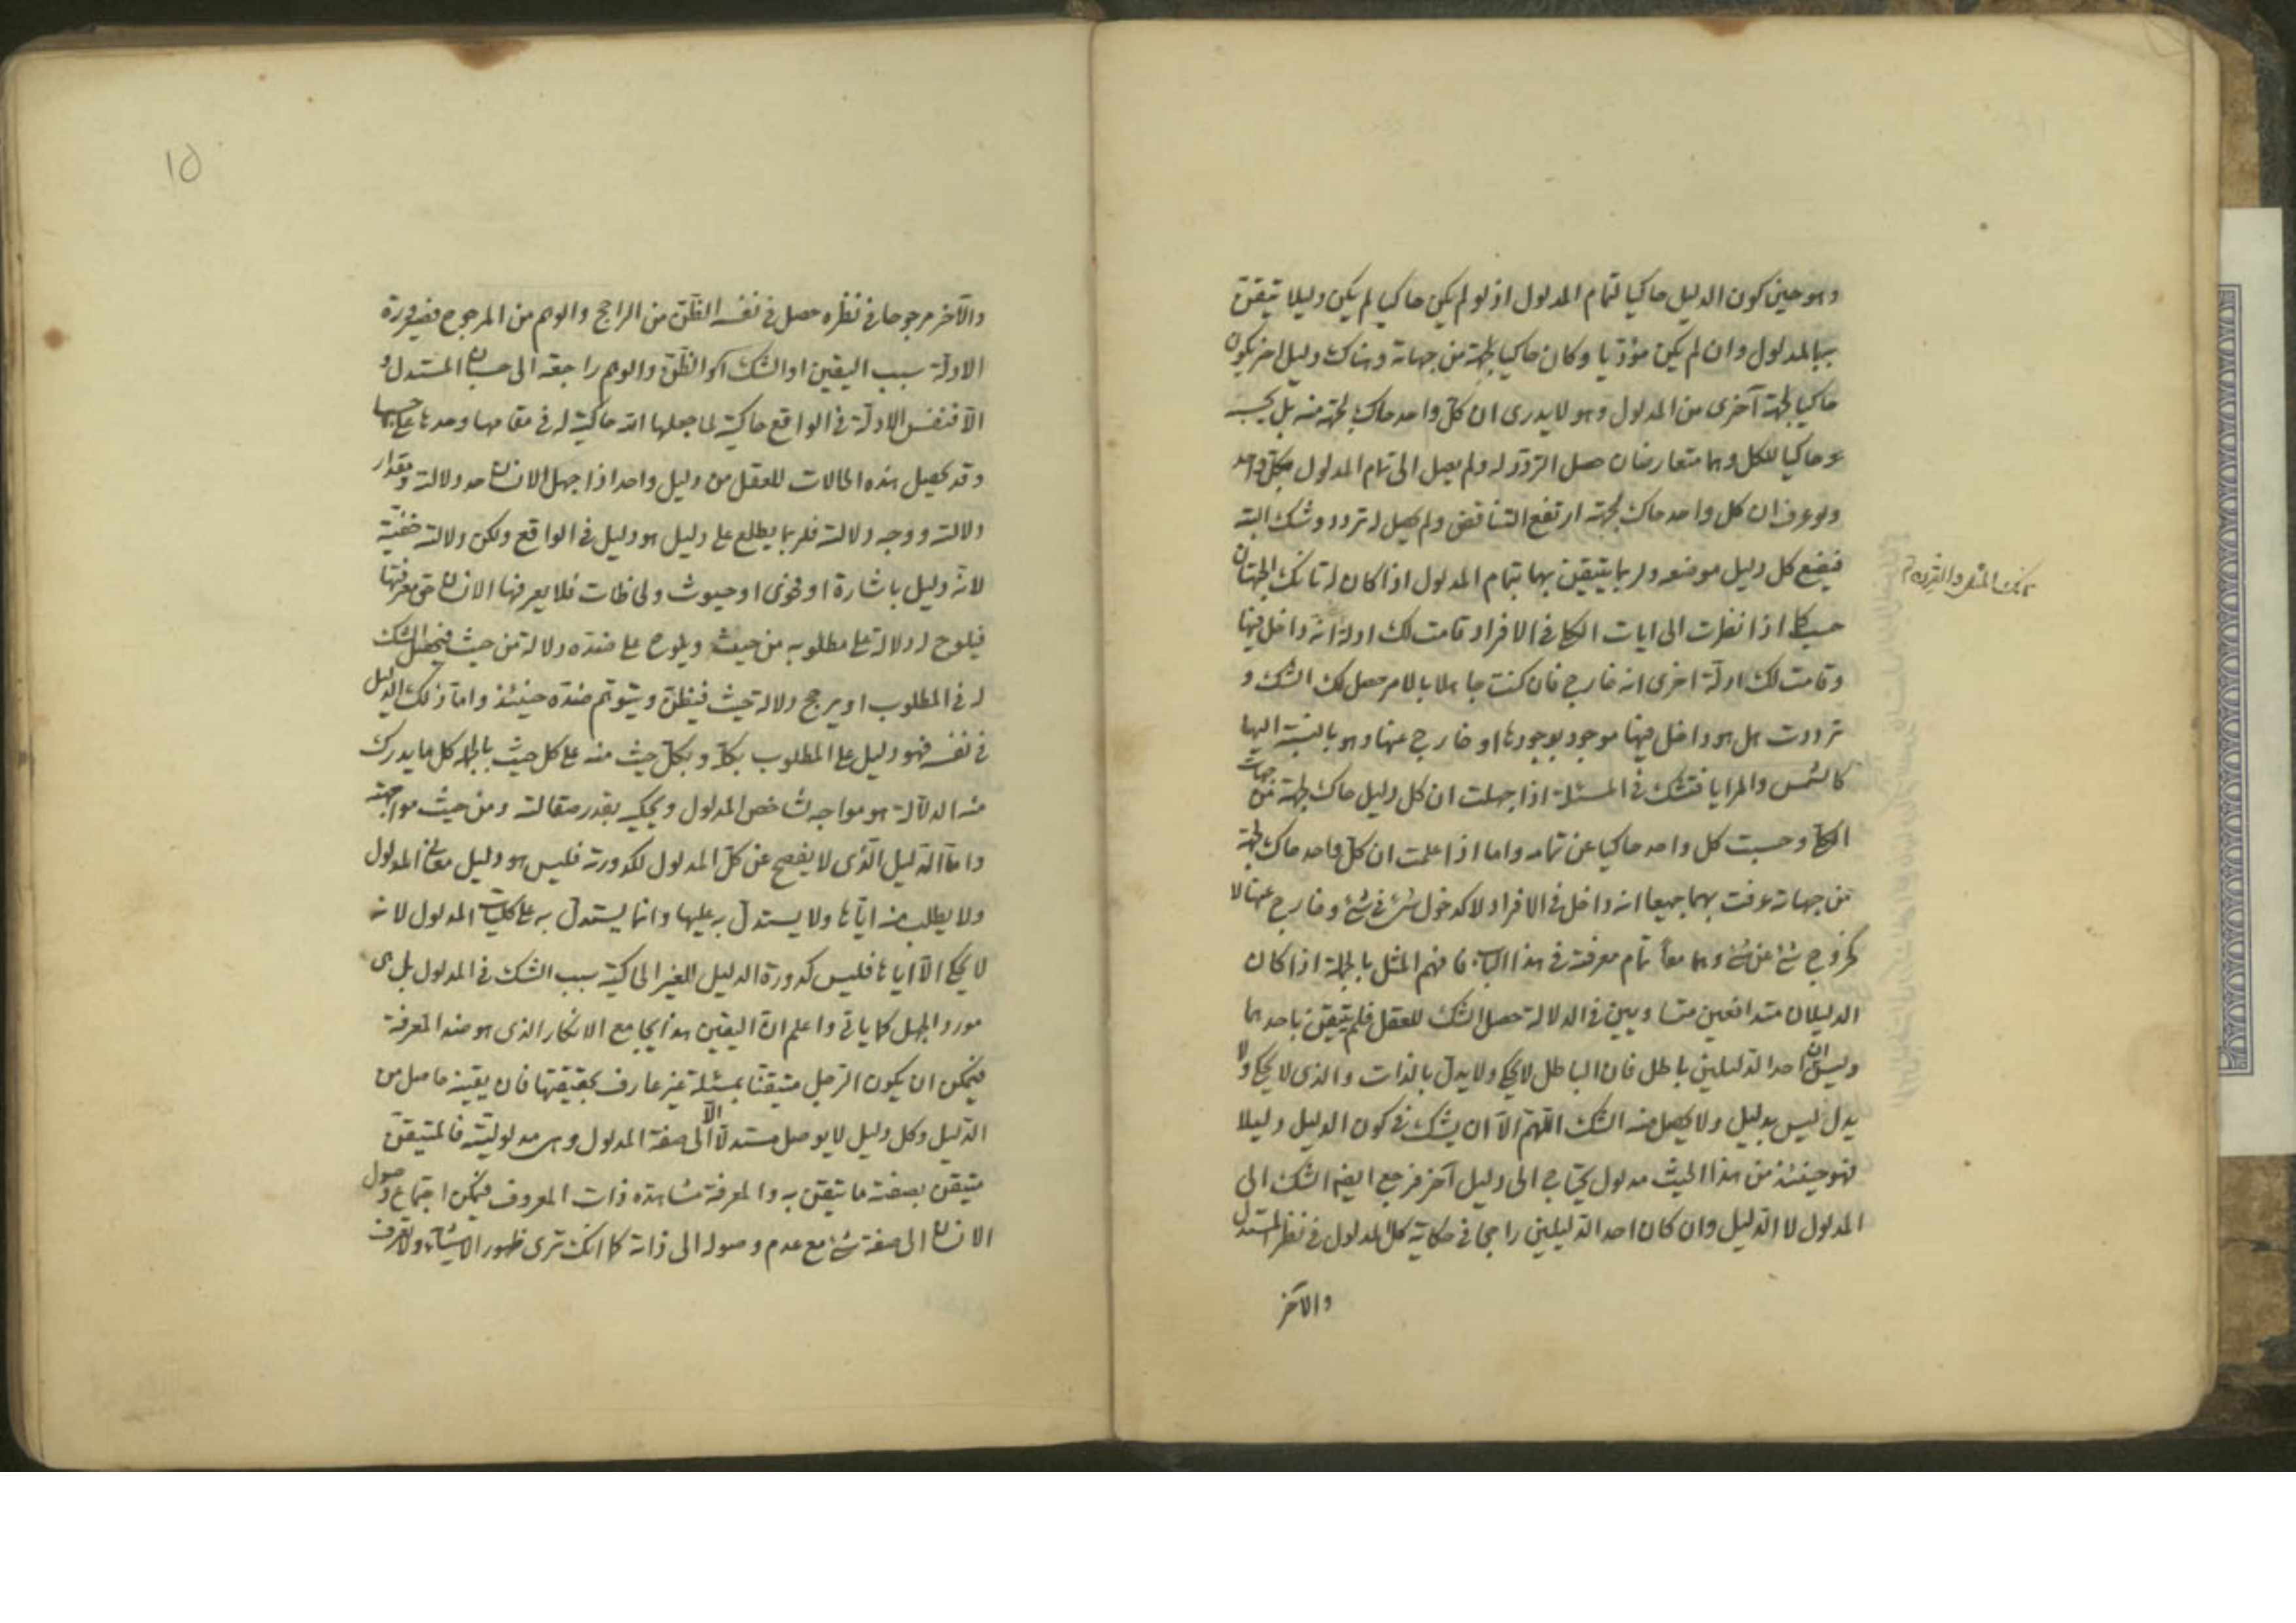 وهو حين كون الدليل حاكيا لتمام المدلول اذ لو لم يكن حاكيا لم يكن دليلا تيقن
بالمدلول وان لم يكن مؤديا وكان حاكيا لجهة من جهاته وهناك دليل اخر يكون
حاكيا لجهة آخرى من المدلول وهو لا يدرى ان كل واحد حاك لجهة منه بل يحسبه
حاكيا للكل وهما متعارضان حصل التردد له ولم يصل الى تمام المدلول بكل واحد
ولو عرف ان كل واحد حاك لجهة ارتفع التناقض ولم يحصل له تردد وشك البتة
فيضع كل دليل موضعه ولربما يتيقن بهما بتمام المدلول اذا كان له تانك الجهتان
حسب كما اذا نظرت الى ايات الكلى فى الافراد قامت لك ادلة انه داخل فيها
وقامت لك ادلة اخرى انه خارج فان كنت جاهلا بالامر حصل لك الشك و
ترددت هل هو داخل فيها موجود بوجودها او خارج عنها وهو بالنسبة اليها
كالشمس والمرايا فتشك فى المسئلة اذا جهلت ان كل دليل حاك لجهة من جهات
الكلى وحسبت كل واحد حاكيا عن تمامه واما اذا علمت ان كل واحد حاك لجهة
من جهاته عرفت بهما جميعا انه داخل فى الافراد لا كدخول شئ فى شئ وخارج عنها لا
كخروج شئ عن شئ وهما معا تمام معرفته فى هذا الباب فافهم المثل بالجملة اذا كان
الدليلان متدافعين متساويين فى الدلالة حصل الشك للعقل فلم يتيقن باحدهما
وليس ان احد الدليلين باطل فان الباطل لا يحكى ولا يدل بالذات والذى لا يحكى ولا
يدل ليس بدليل ولا يحصل منه الشك اللهم الا ان يشك فى كون الدليل دليلا
فهو حينئذ من هذا الحيث مدلول يحتاج الى دليل آخر فرجع ايضا الشك الى
المدلول لا الدليل وان كان احد الدليلين راجحا فى حكاية كل المدلول فى نظر المستدل
والآخر
١٥
والآخر مرجوحا فى نظره حصل فى نفسه الظن من الراجح والوهم من المرجوح فصيرورة
الادلة سبب اليقين او الشك او الظن والوهم راجعة الى حسبان المستدل و
الا فنفس الادلة فى الواقع حاكية لما جعلها الله حاكية له فى مقامها وحدها على حسبها
وقد تحصل هذه الحالات للعقل من دليل واحد اذا جهل الانسان حد دلالته ومقدار
دلالته ووجه دلالته فلربما يطلع على دليل هو دليل فى الواقع ولكن دلالته خفية
لانه دليل باشارة او فحوى او حيوث ولحاظات فلا يعرفها الانسان حق معرفتها
فيلوح له دلالة على مطلوبه من حيث ويلوح على ضده دلالة من حيث فيحصل الشك
له فى المطلوب او يرجح دلالة حيث فيظن ويتوهم ضده حينئذ واما ذلك الدليل
فى نفسه فهو دليل على المطلوب بكله وبكل حيث منه على كل حيث بالجملة كل ما يدرك
منه الدلالة هو مواجه لشاخص المدلول ويحكيه بقدر صقالته ومن حيث مواجهته
واما الدليل الذى لا يفصح عن كل المدلول لكدورته فليس هو دليل معانى المدلول
ولا يطلب منه اياها ولا يستدل به عليها وانما يستدل به على كليات المدلول لانه
لا يحكى الا اياها فليس كدورة الدليل الغير الحاكية سبب الشك فى المدلول بل هى
مورد الجهل كما ياتى واعلم ان اليقين هذا يجامع الانكار الذى هو ضد المعرفة
فيمكن ان يكون الرجل متيقنا بمسئلة غير عارف بحقيقتها فان يقينه حاصل من
الدليل وكل دليل لا يوصل مستدلا الا الى صفة المدلول وهى مدلوليته فالمتيقن
متيقن بصفة ما تيقن به والمعرفة مشاهدة ذات المعروف فيمكن اجتماع وصول
الانسان الى صفة شئ مع عدم وصوله الى ذاته كما انك ترى ظهور الاشياء ولا تعرف